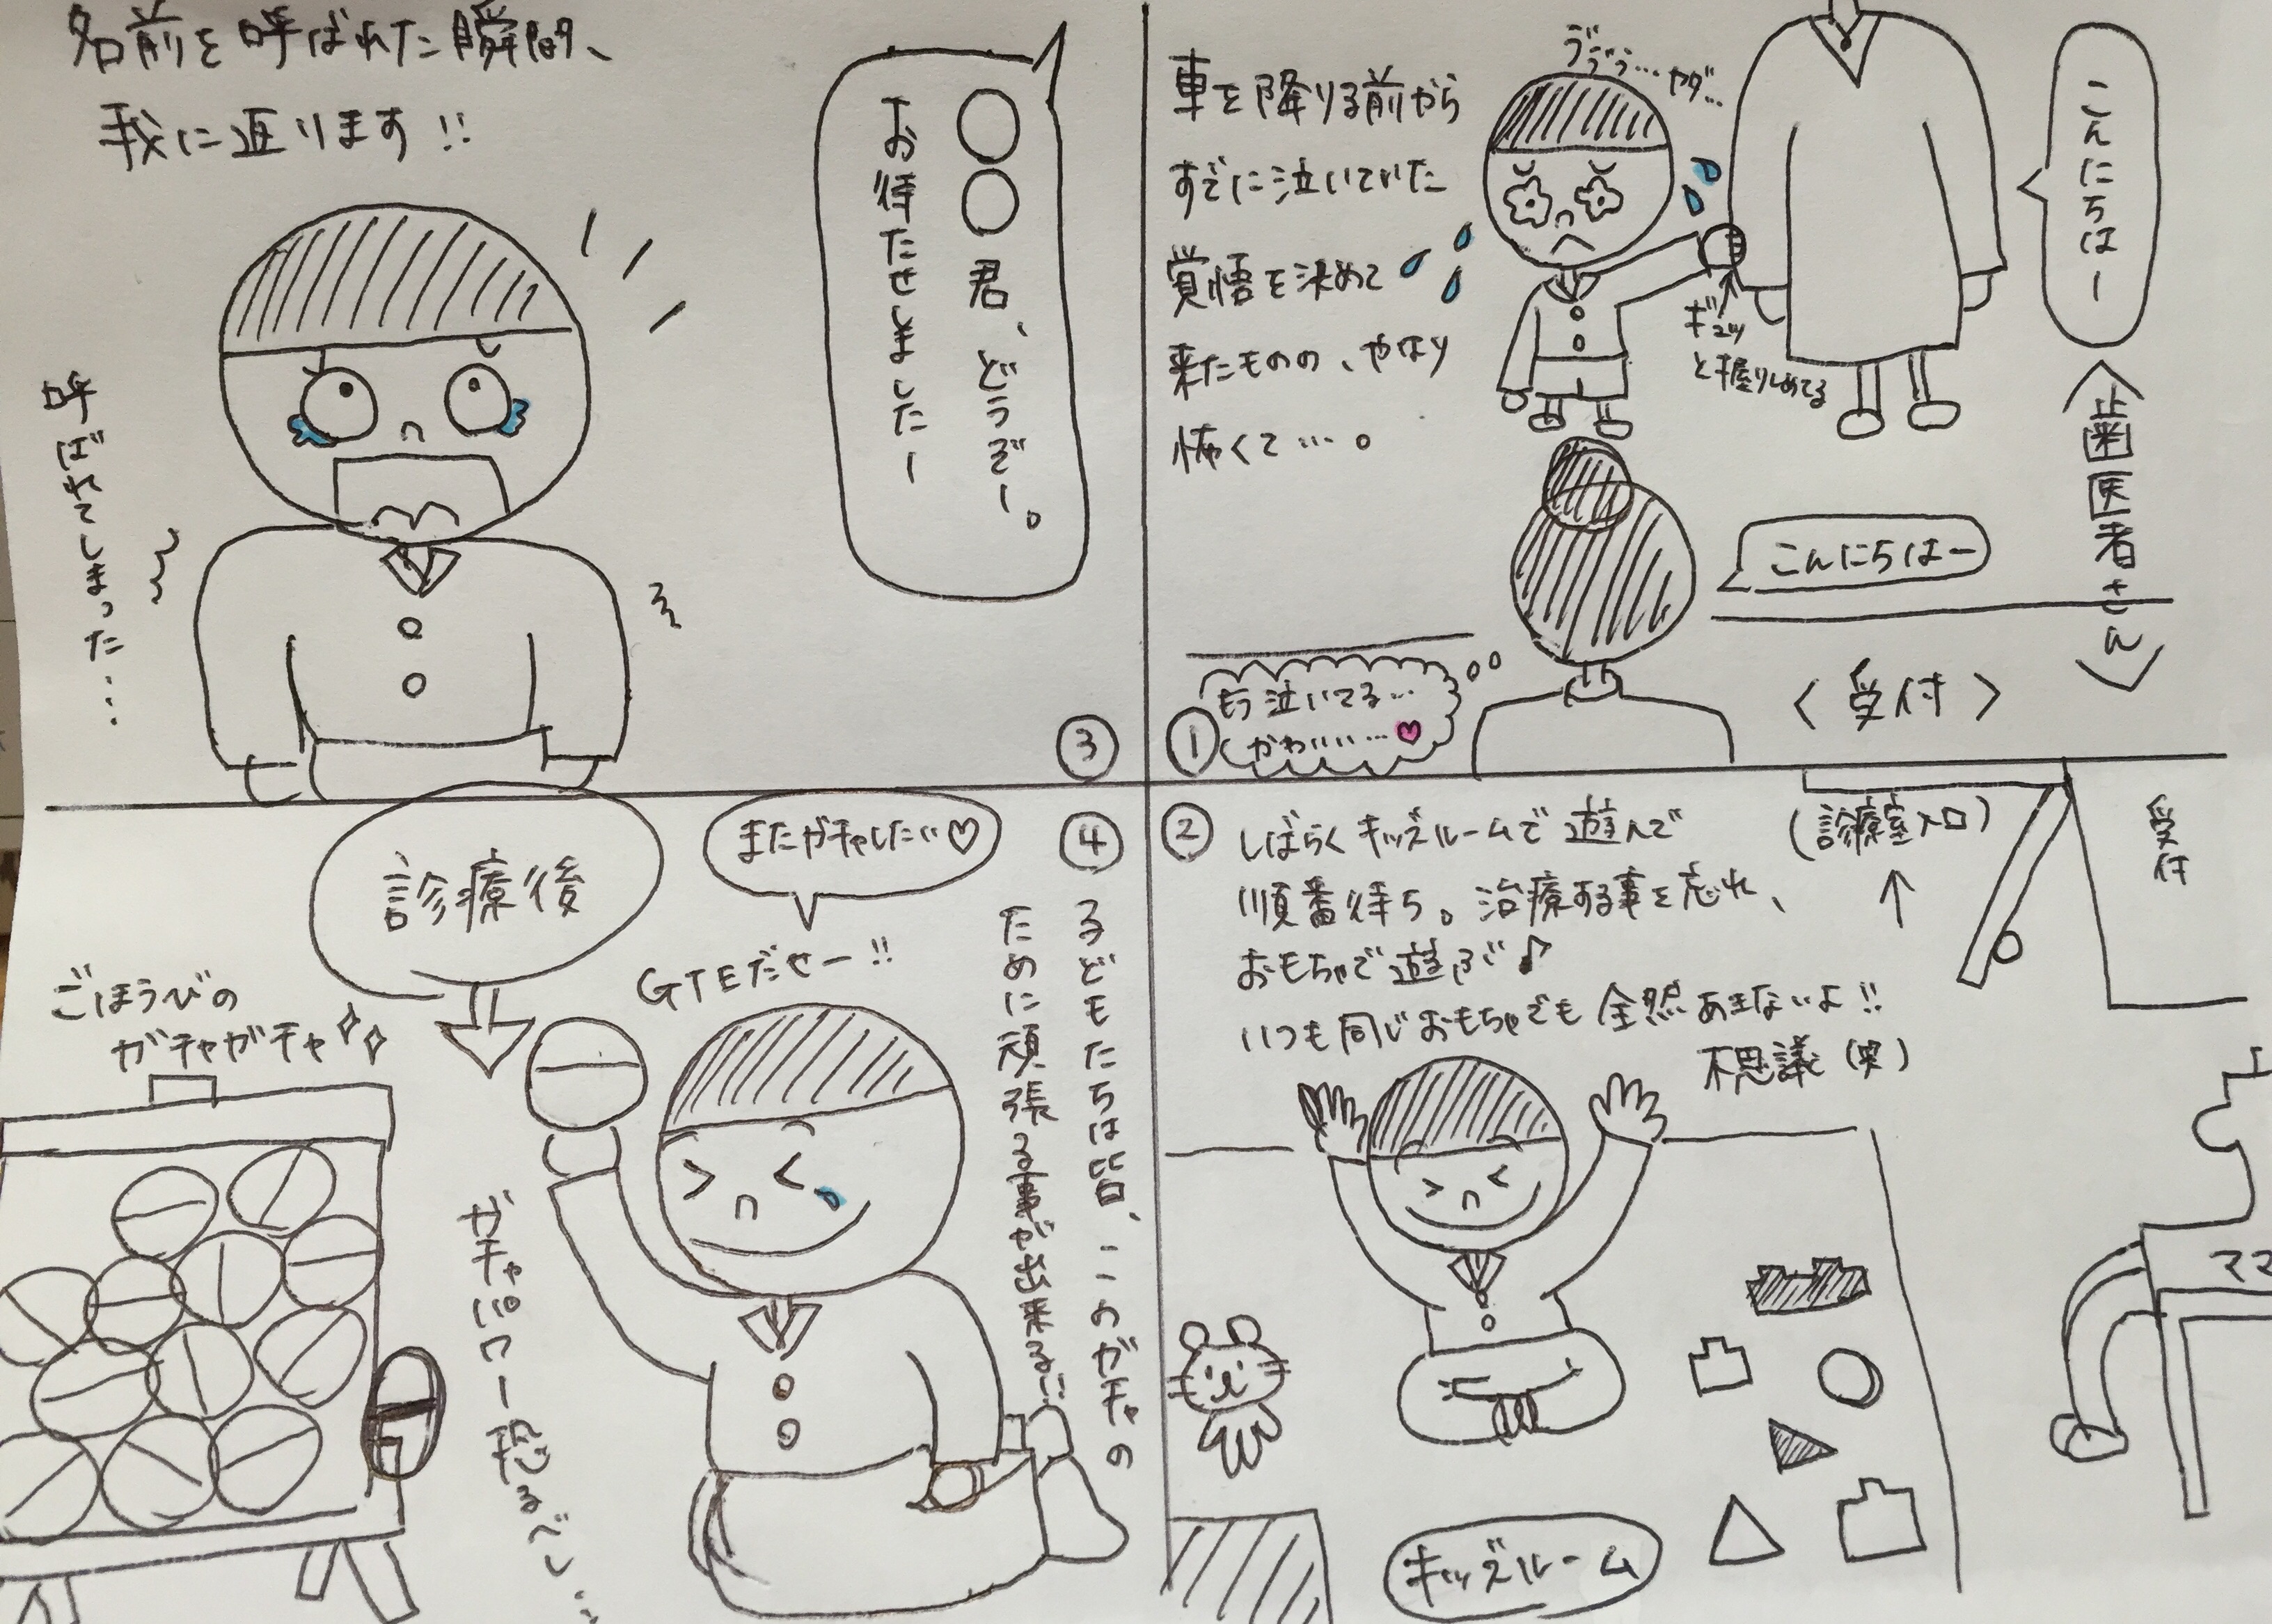 こんにちは－
〈歯医者さん〉
ヴヴヴ…ヤダ…
車を降りる前から
すでに泣いていた
覚悟を決めて
来たものの、やはり
怖くて…。
ギュッ
と握りしめてる
こんにちは－
〈受付〉
もう泣いてる…
かわいい…♡
①
②
しばらくキッズルームで遊んで
順番待ち。治療する事を忘れ、
おもちゃで遊ぶ♪
いつも同じおもちゃでも全然あきないよ!!
不思議(笑)
(診療室入口)
↑
受付
ママ
キッズルーム
③
名前を呼ばれた瞬間、
我に返ります!!
○○君、どうぞー。
お待たせしましたー
呼ばれてしまった…
④
子どもたちは皆、このガチャの
ために頑張る事が出来る!!
診療後
またガチャしたい♡
GTEだぜー!!
ごほうびの
ガチャガチャ
ガチャパワー恐るべし…